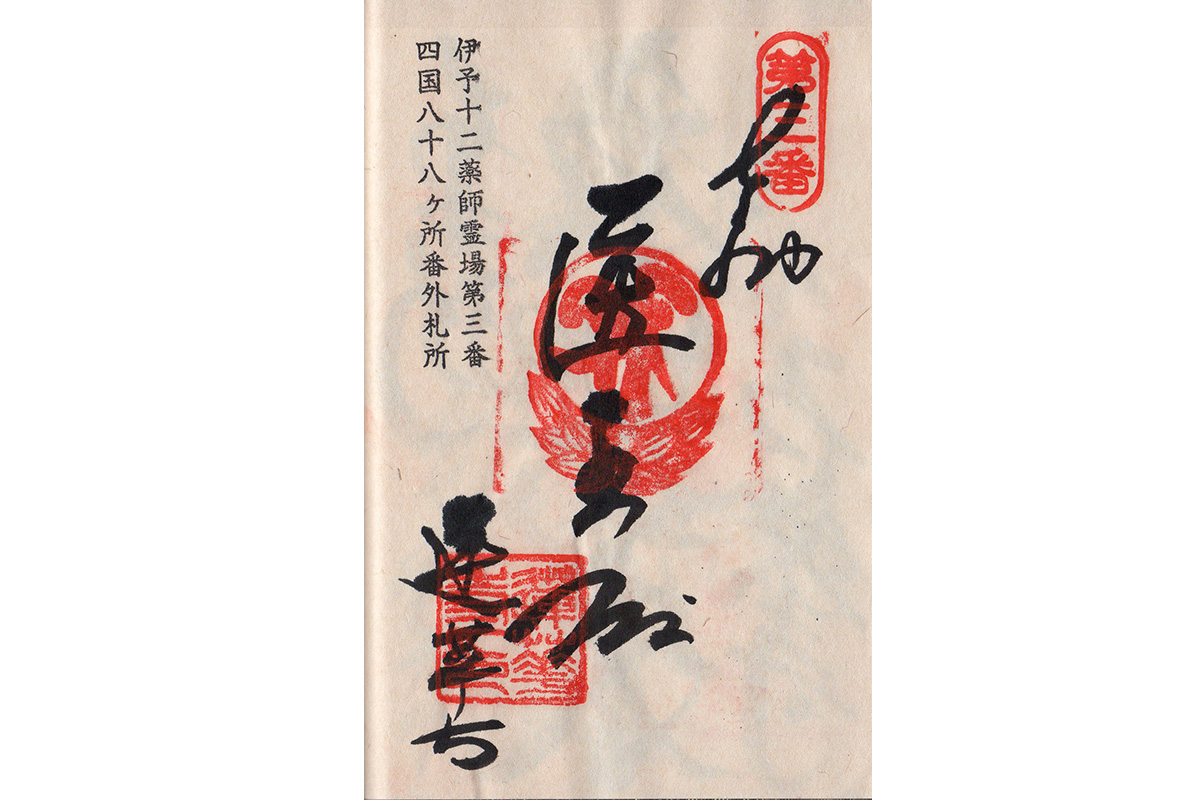 第三番
奉拝
医王殿
蓮華寺
伊予十二薬師霊場第三番
四国八十八ヶ所番外札所